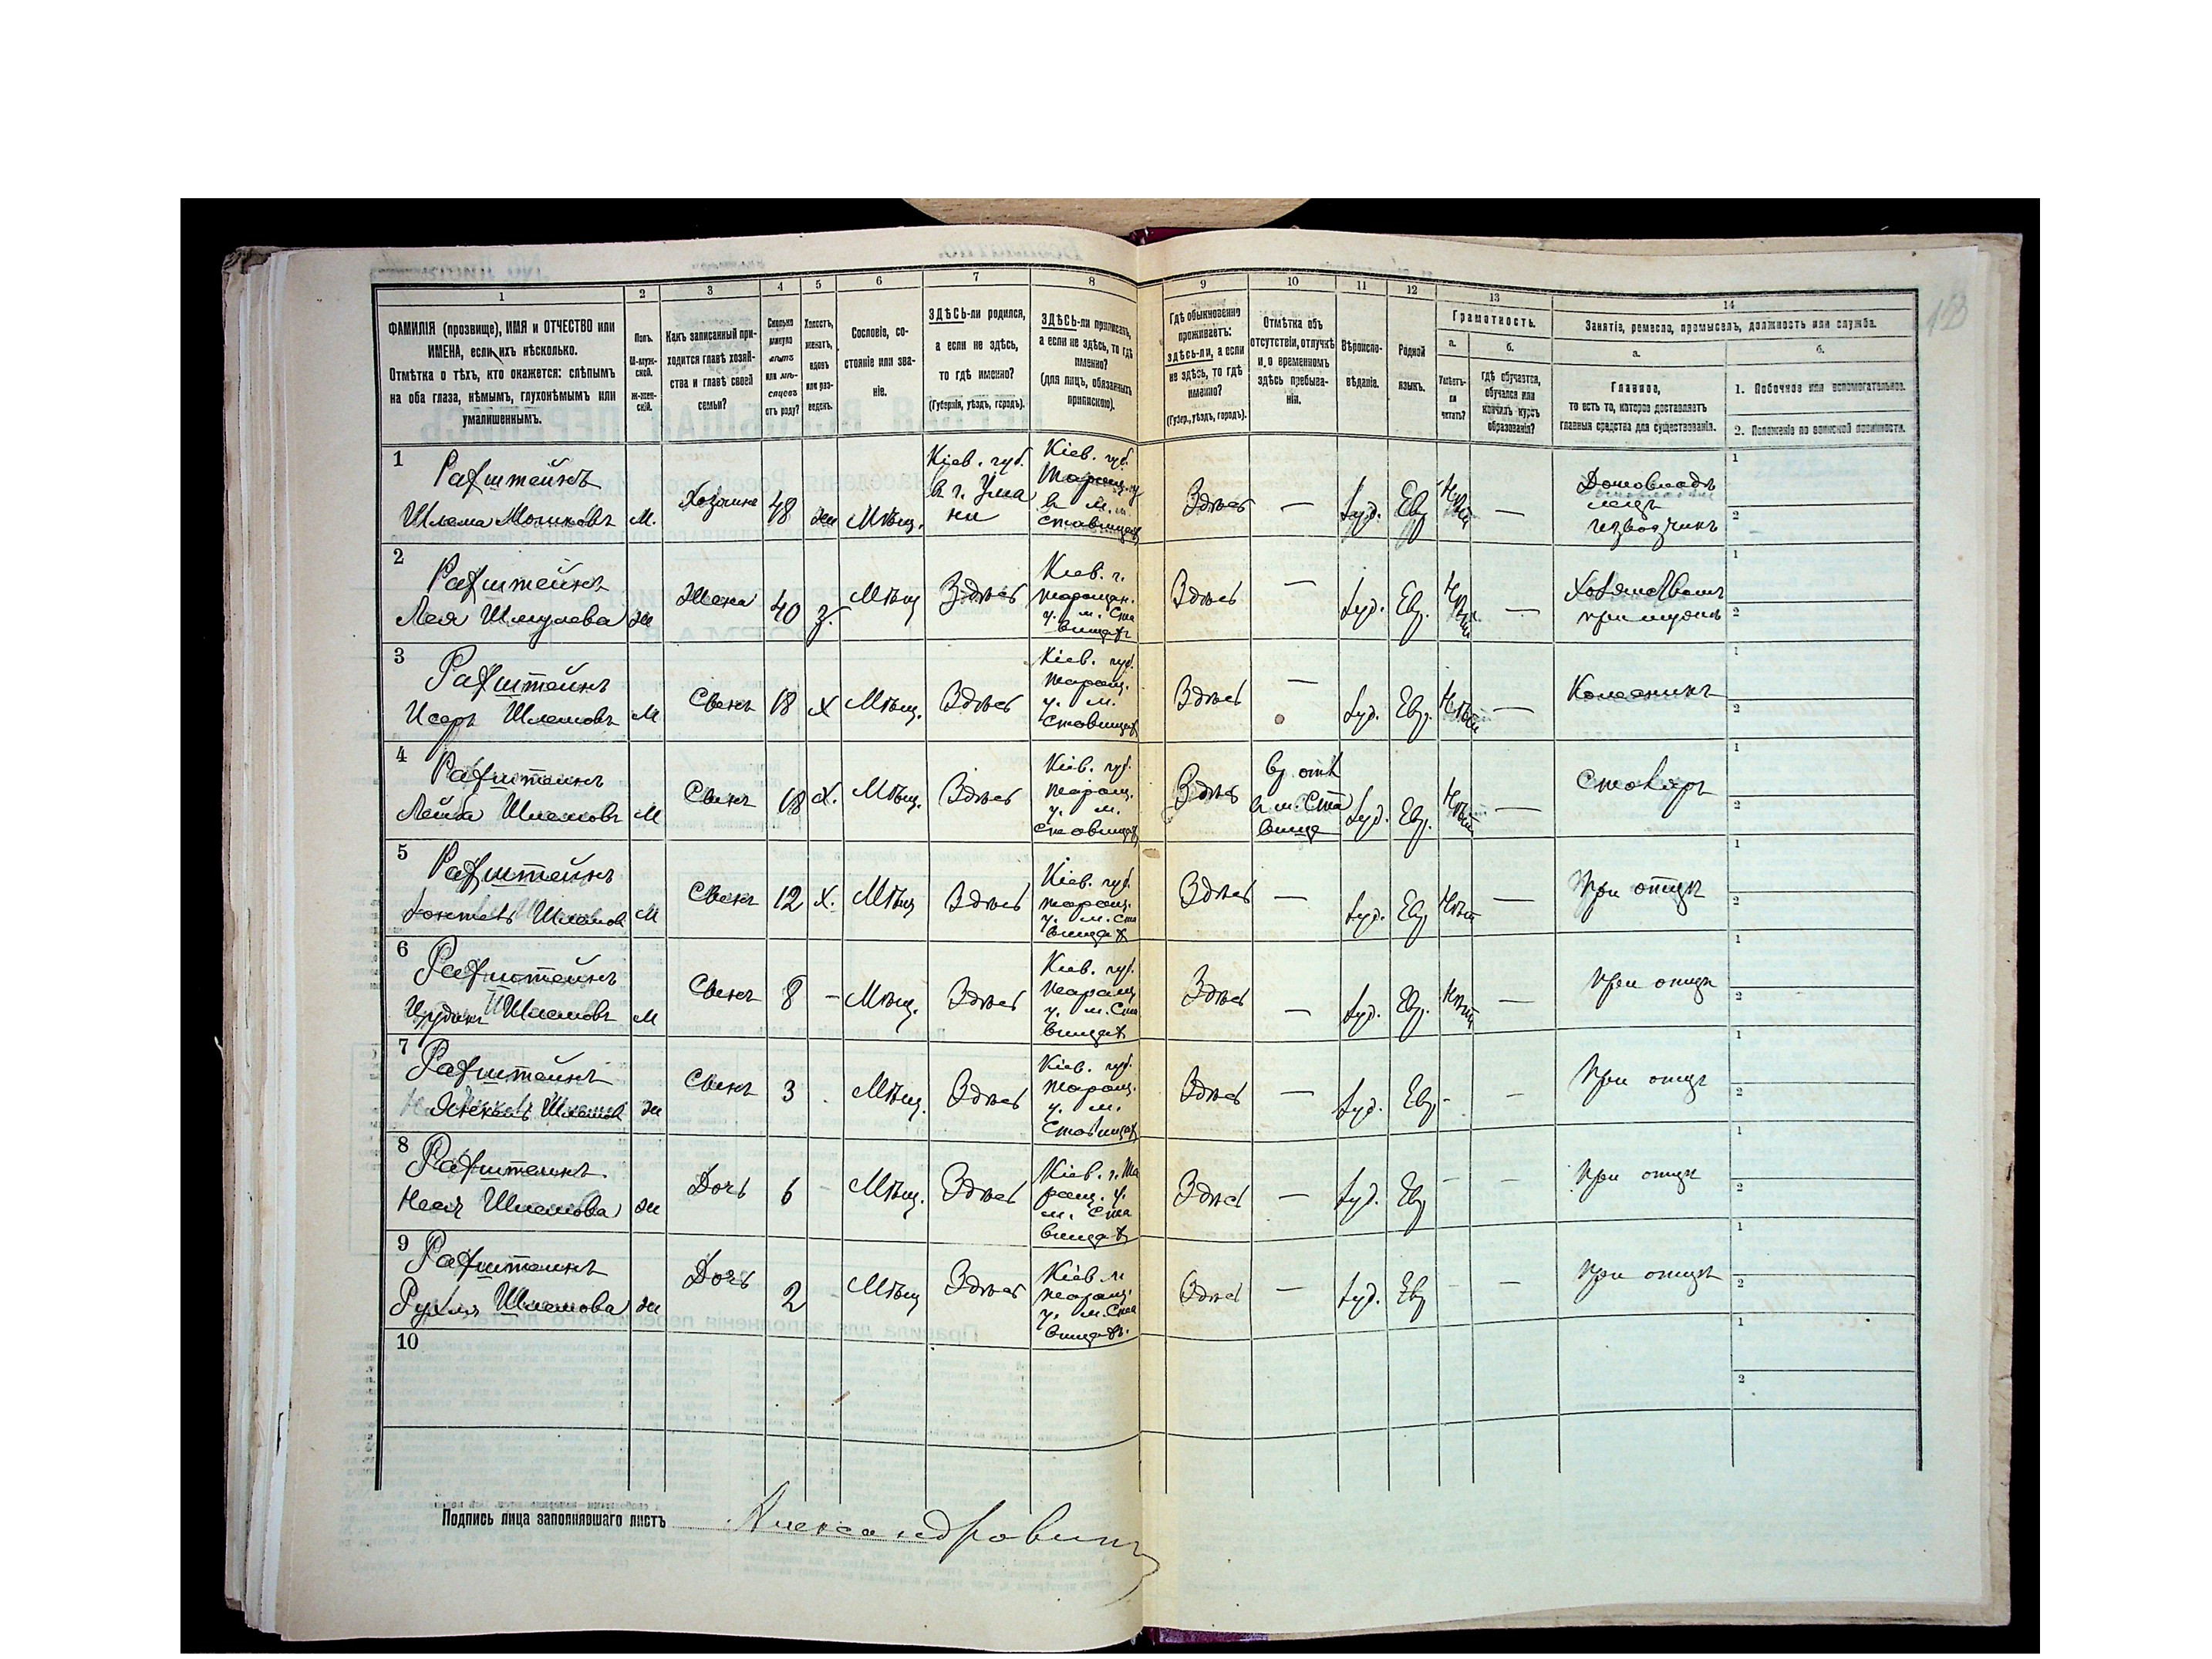 1
2
3
4
5
6
7
8
9
10
11
12
13
14
ФАМИЛІЯ (прозвище), ИМЯ и ОТЧЕСТВО или
ИМЕНА, если ихъ нѣсколько.
Отмѣтка о тѣхъ, кто окажется: слѣпымъ
на оба глаза, нѣмымъ, глухонѣмымъ или
умалишеннымъ.
Полъ.
М-муж-
ской.
Ж-жен-
скій.
Какъ записанный при-
ходится главѣ хозяй-
ства и главѣ своей
семьи?
Сколько
минуло
лѣтъ
или мѣ-
сяцевъ
отъ роду?
Холостъ,
женатъ,
вдовъ
или раз-
веденъ.
Сословіе, со-
стояніе или зва-
ніе.
ЗДѢСЬ-ли родился,
а если не здѣсь,
то гдѣ именно?
(Губернія, уѣздъ, городъ).
ЗДѢСЬ-ли приписанъ,
а если не здѣсь, то гдѣ
именно?
(для лицъ, обязанныхъ
припискою).
Гдѣ обыкновенно
проживаетъ:
здѣсь-ли, а если
не здѣсь, то гдѣ
именно?
(Губер., уѣздъ, городъ).
Отмѣтка объ
отсутствіи, отлучкѣ
и о временномъ
здѣсь пребыва-
ніи.
Вѣроиспо-
вѣданіе.
Родной
языкъ.
Грамотность.
а.
Умѣетъ-
ли
читать?
б.
гдѣ обучается,
обучался или
кончилъ курсъ
образованія?
Занятіе, ремесло, промыселъ, должность или служба.
а.
Главное,
то есть то, которое доставляетъ
главныя средства для существованія.
б.
1. Побочное или вспомогательное.
2. Положеніе по воинской повинности.
1
Рафштейнъ
Шлема Мошковъ М.
Хозяинъ
48
ж
Мѣщ.
Кіев. губ.
в г. Ума
ни
Кіев. губ.
Таращ. у
в м.
Ставищах
Здѣсь
—
Іуд.
Евр
Нѣт
—
Домовладѣ
лецъ
извозчикъ
2
Рафштейнъ
Лея Шмулева ж
Жена
40
з.
Мѣщ
Здѣсь
Кіев. г.
таращан.
у. м. Ста
вищах
Здѣсь
—
Іуд.
Евр.
—
при мужѣ
3
Рафштейнъ
Исеръ Шлемовъ М
Сынъ
18
х
Мѣщ.
Здѣсь
Кіев. губ.
таращ.
у. м.
Ставищах
Здѣсь
—
Іуд.
Евр.
Нѣт
—
Колесникъ
4
Рафштейнъ
Лейба Шлемовъ М
Сынъ
18
х.
Мѣщ.
Здѣсь
Кіев. губ.
таращ.
у. м.
Ставищах
Здѣсь
вр. отл
в м. Ста
вище
Іуд.
Евр.
Нѣт
—
Столяръ
5
Рафштейнъ
Шлемов М
Сынъ
12
х.
Мѣщ
Здѣсь
Кіев. губ.
таращ.
у. м. Ста
вищах
Здѣсь
—
Іуд.
Евр
Нѣт
—
При отцѣ
6
Рафштейнъ
Шлемовъ М
Сынъ
8
—
Мѣщ.
Здѣсь
Кіев. губ.
таращ
у. м. Ста
вищах
Здѣсь
—
Іуд.
Евр.
Нѣт
—
при отцѣ
7
Рафштейнъ
Шлемов ж
Сынъ
3
Мѣщ.
Здѣсь
Кіев. губ.
таращ.
у. м.
Ставищах
Здѣсь
—
Іуд.
Евр
-
-
При отцѣ
8
Рафштейнъ
Шлемова ж
Дочь
6
-
Мѣщ.
Здѣсь
Кіев. г. Та
ращ. у.
м. Ста
вищах
Здѣсь
—
Іуд.
Евр
-
-
при отцѣ
9
Рафштейнъ
Рухля Шлемова ж
Дочь
2
Мѣщ
Здѣсь
таращ.
у. м. Ста
вищах.
Здѣсь
—
Іуд.
Евр
-
-
при отцѣ
10
Подпись лица заполнявшаго листъ Александровичъ